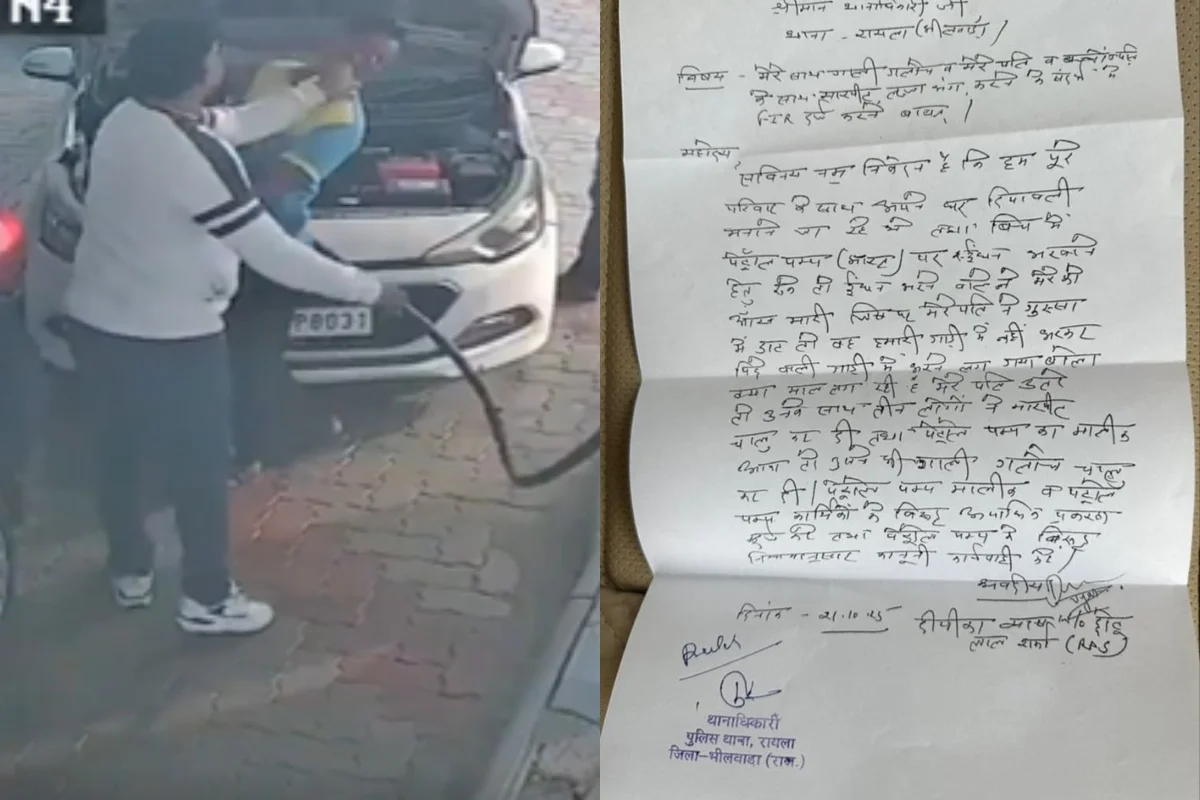 N4
P8031
श्रीमान थानाधिकारी जी
थाना - रायला (भीलवाड़ा)
विषय - मेरे साथ गाली गलौच व मेरे पति व
के साथ मारपीट लज्जा भंग करने के संबंध में
FIR दर्ज करने बाबत।
महोदय,
सविनय नम्र निवेदन है कि हम पूरे
परिवार के साथ अपने घर दिपावली
मनाने जा रहे थे तथा बिच में
पेट्रोल पम्प पर ईंधन भरवाने
हेतु रुके तो ईंधन भरने वाले ने मेरे को
आँख मारी जिस पर मेरे पति ने गुस्सा
में डाट तो वह हमारी गाड़ी में नहीं भरकर
पिछे वाली गाड़ी में भरने लग गया बोला
क्या माल लग रही है मेरे पति उतरे
तो उनके साथ तीन लोगों ने मारपीट
चालु कर दी तथा पेट्रोल पम्प का मालीक
आया तो उसने भी गाली गलोच चालु
कर दी। पेट्रोल पम्प मालीक व पेट्रोल
पम्प कार्मिकों के विरुद्ध आपराधिक प्रकरण
दर्ज करे तथा पेट्रोल पम्प के विरुद्ध
नियमानुसार कानूनी कार्यवाही करे।
भवदीय
दिनांक - 21.10.25 दीपीका व्यास w/o छोटू
लाल शर्मा (RAS)
थानाधिकारी
पुलिस थाना, रायला
जिला-भीलवाडा (राज.)